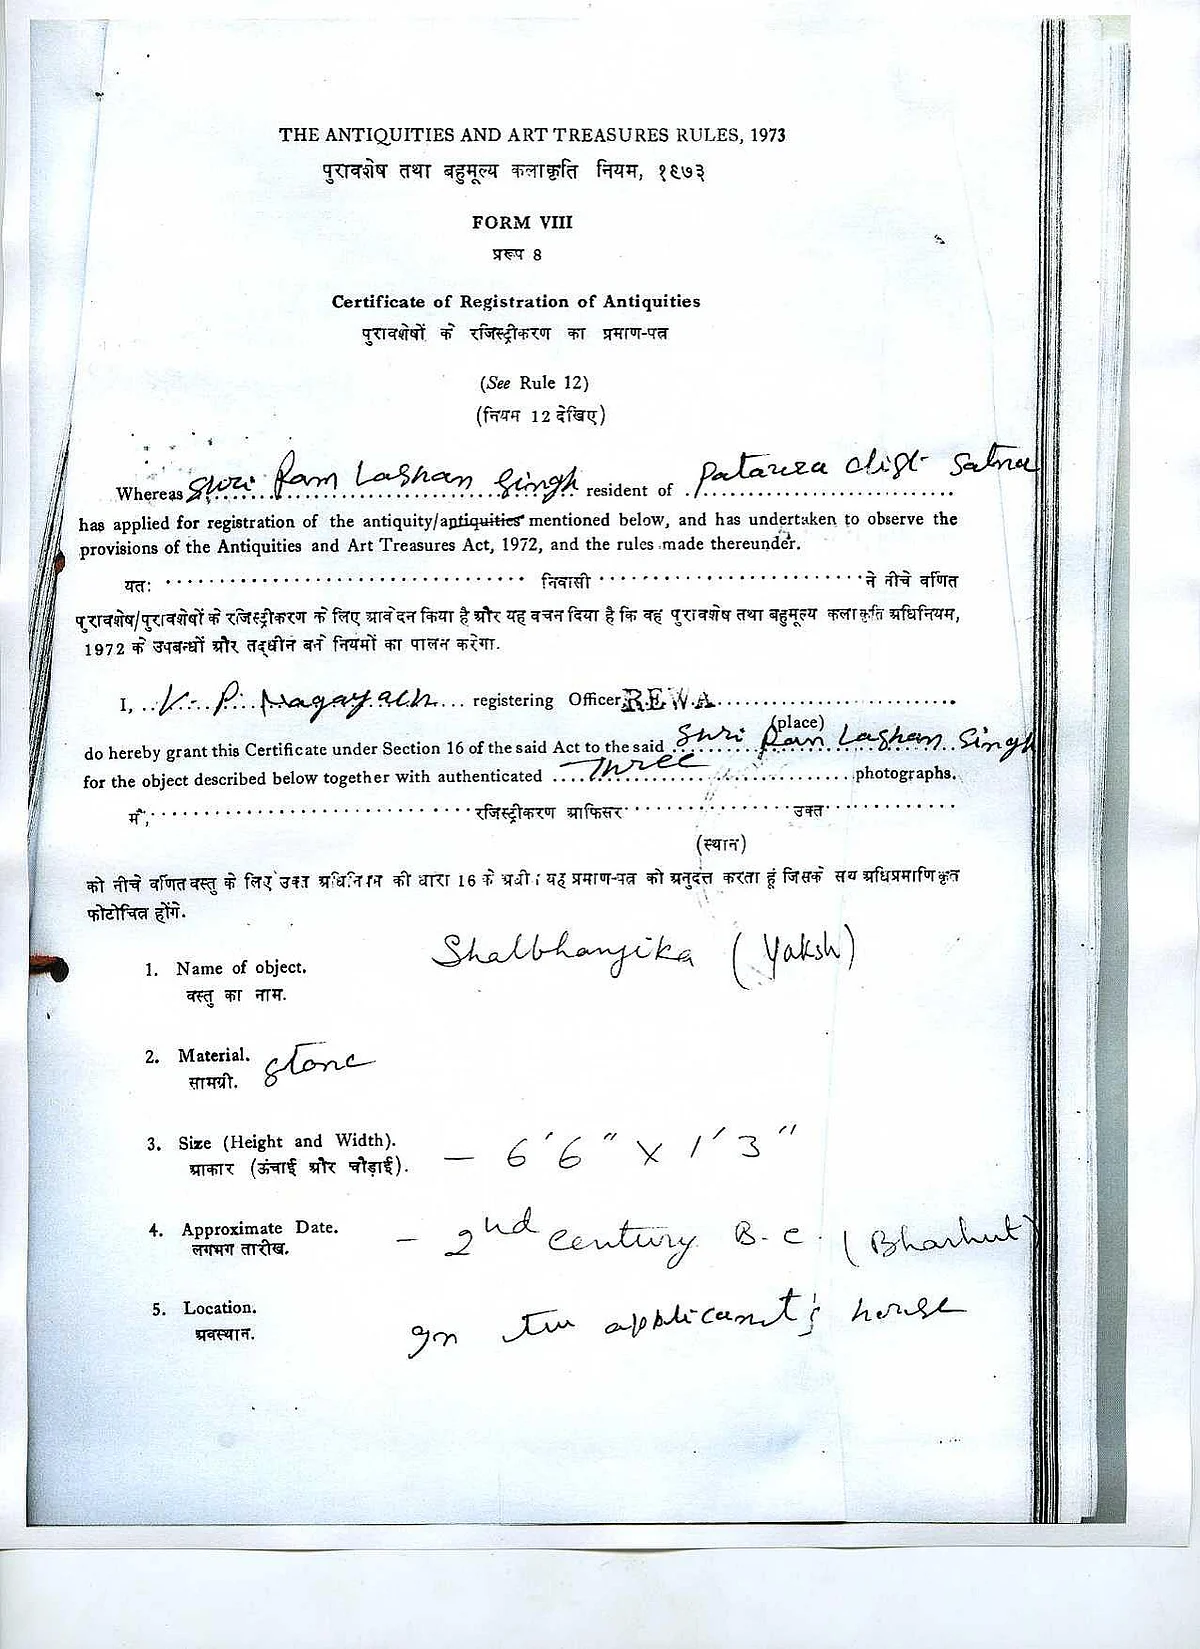 THE ANTIQUITIES AND ART TREASURES RULES, 1973
पुरावशेष तथा बहुमूल्य कलाकृति नियम, १९७३
FORM VIII
प्ररूप 8
Certificate of Registration of Antiquities
पुरावशेषों के रजिस्ट्रीकरण का प्रमाण-पत्र
(See Rule 12)
(नियम 12 देखिए)
Whereas Shri Ram Lashan Singh resident of Pataura dist Satna
has applied for registration of the antiquity/antiquities mentioned below, and has undertaken to observe the
provisions of the Antiquities and Art Treasures Act, 1972, and the rules made thereunder.
यतः ........ निवासी ........ ने नीचे वर्णित
पुरावशेष/पुरावशेषों के रजिस्ट्रीकरण के लिए आवेदन किया है और यह वचन दिया है कि वह पुरावशेष तथा बहुमूल्य कलाकृति अधिनियम,
1972 के उपबन्धों और तद्धीन बने नियमों का पालन करेगा.
I, V. P. Nagayach registering Officer REWA
(place)
do hereby grant this Certificate under Section 16 of the said Act to the said Shri Ram Lashan Singh
for the object described below together with authenticated Three photographs.
मैं, ........ रजिस्ट्रीकरण आफिसर ........ उक्त ........
(स्थान)
को नीचे वर्णित वस्तु के लिए उक्त अधिनियम की धारा 16 के अधीन यह प्रमाण-पत्र को अनुदत्त करता हूं जिसके सय अधिप्रमाणिकृत
फोटोचित्र होंगे.
1. Name of object. Shalbhanjika (Yaksh)
वस्तु का नाम.
2. Material. Stone
सामग्री.
3. Size (Height and Width). — 6'6" x 1'3"
आकार (ऊंचाई और चौड़ाई).
4. Approximate Date. — 2nd Century B.C. (Bharhut)
लगभग तारीख.
5. Location. In the applicant's house
अवस्थान.